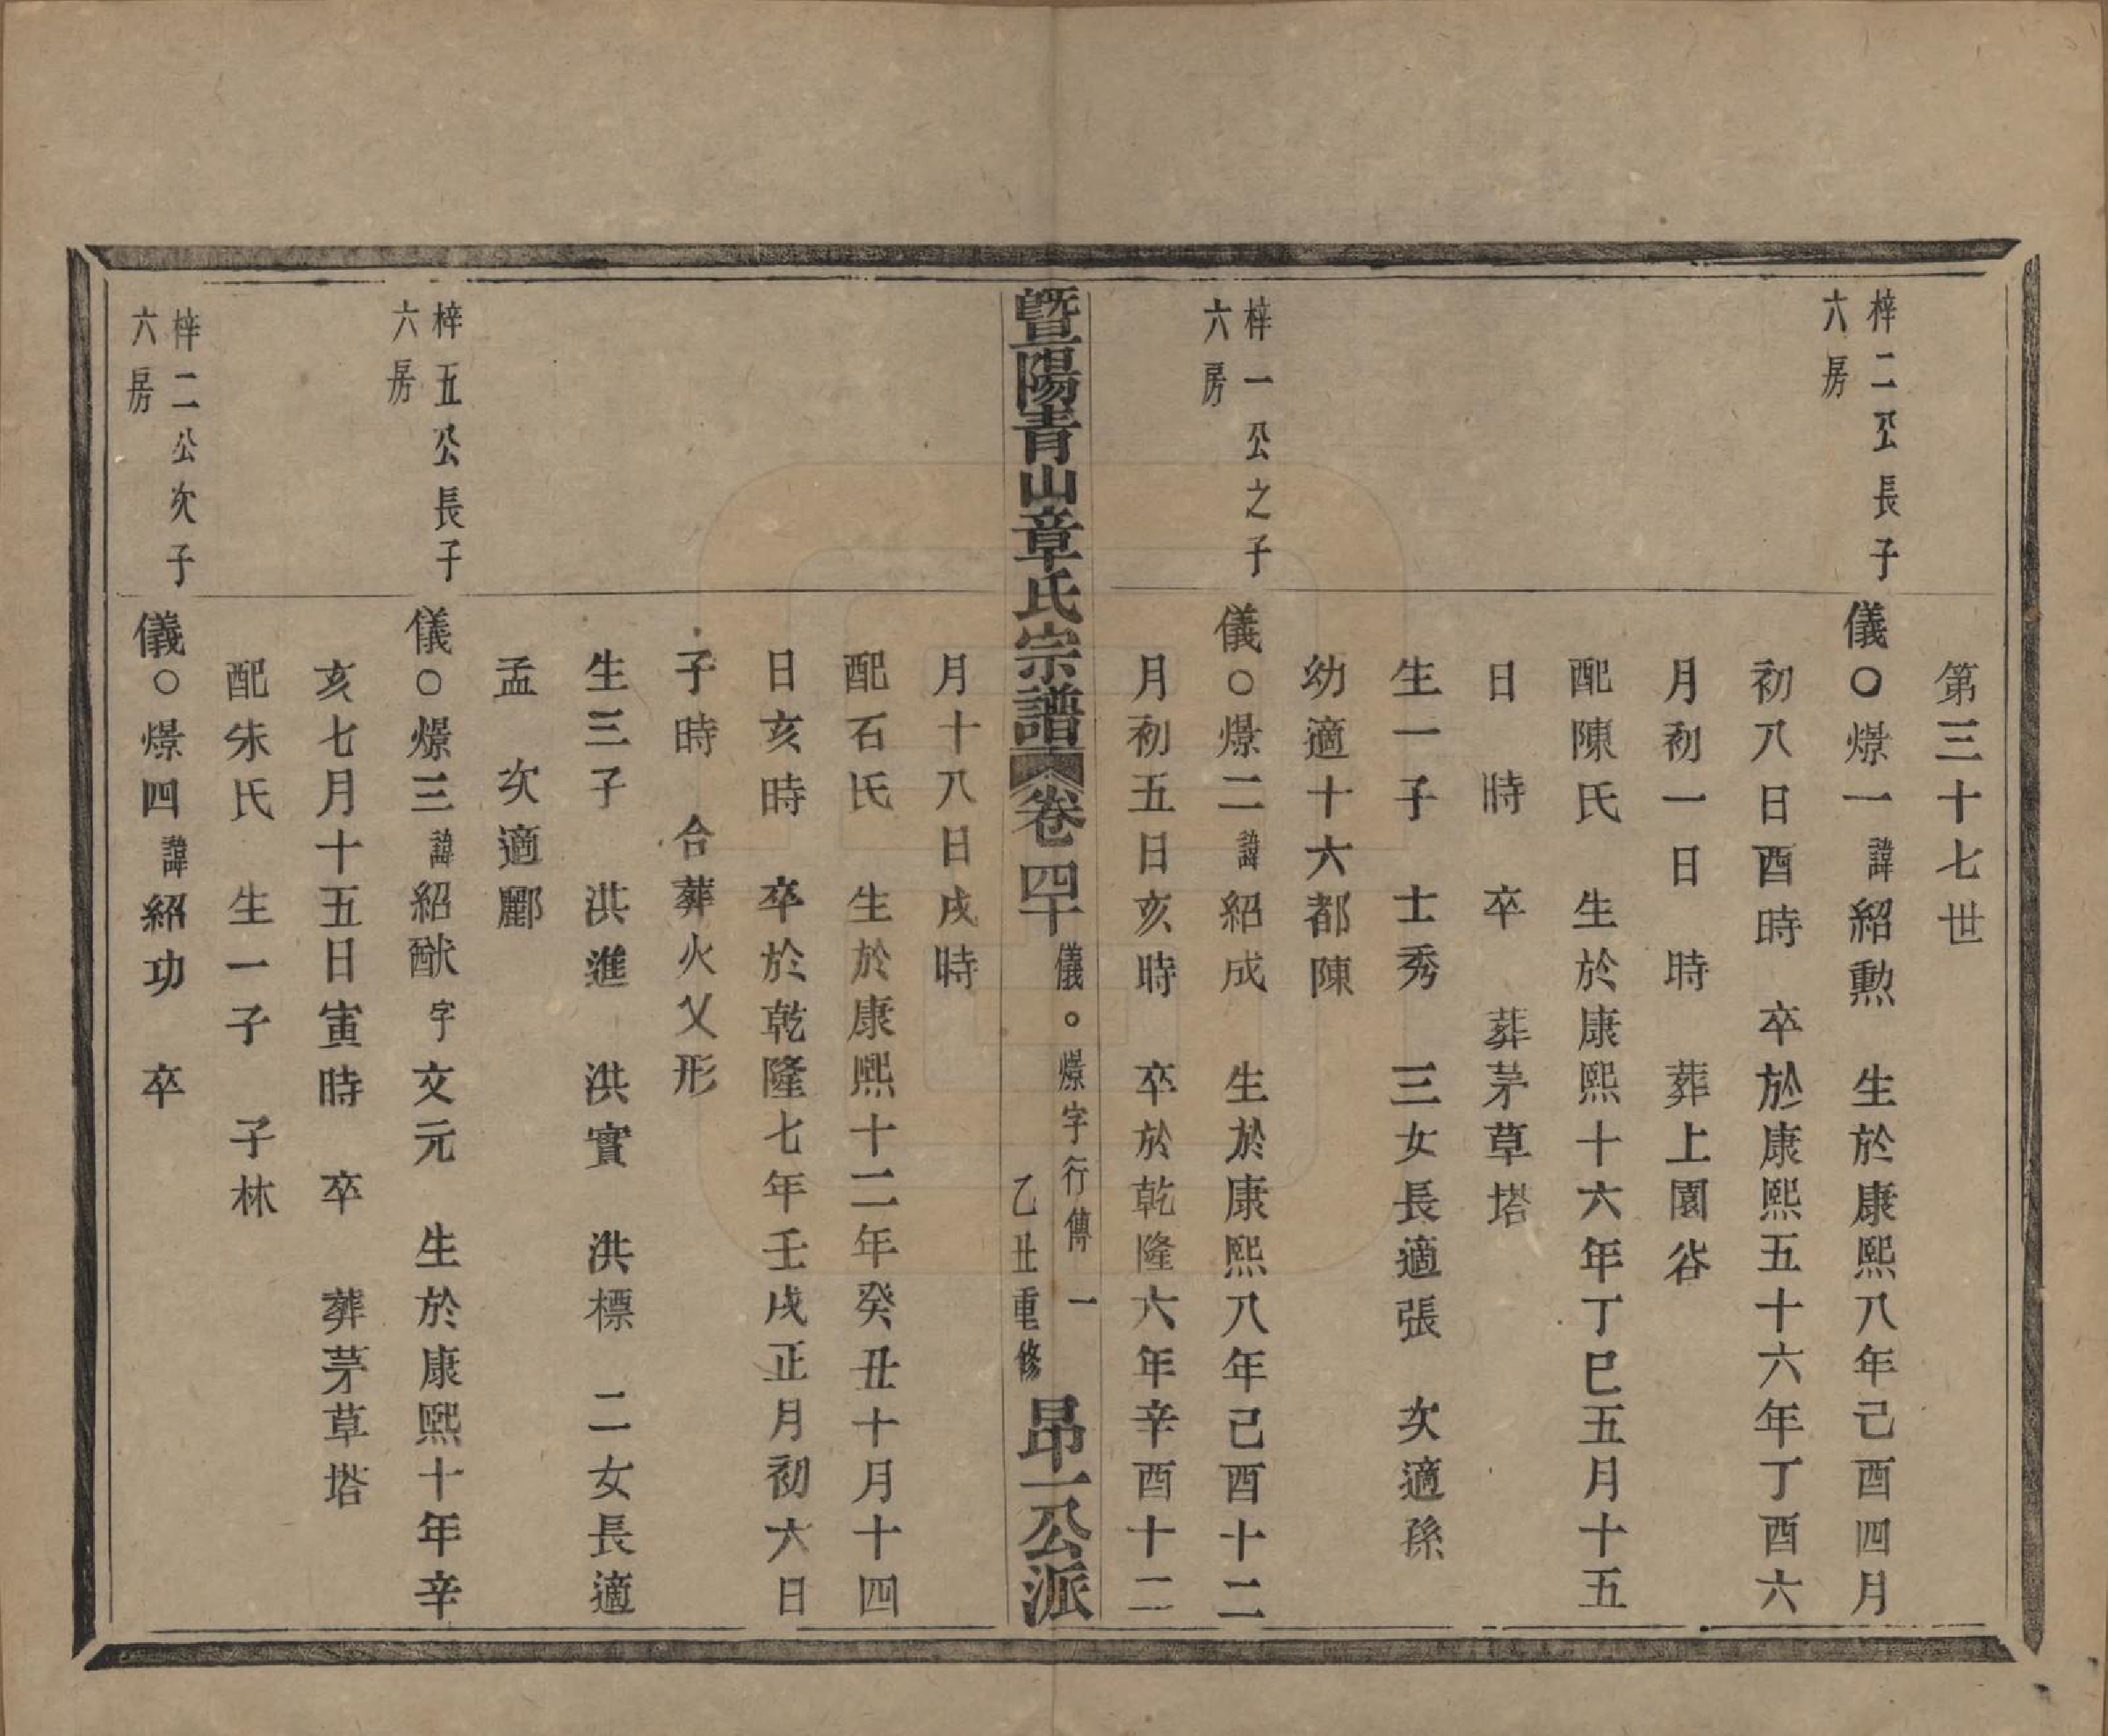 第三十七世
梓二公長子
六房
儀○㷡一諱紹勲　生於康熙八年己酉四月
初八日酉時　卒於康熙五十六年丁酉六
月初一日　時　葬上園谷
配陳氏　生於康熙十六年丁巳五月十五
日　時　卒　葬茅草塔
生一子　士秀　三女長適張　次適孫
幼適十六都陳
梓一公之子
六房
儀○㷡二諱紹成　生於康熙八年己酉十二
月初五日亥時　卒於乾隆六年辛酉十二
暨陽青山章氏宗譜　卷四十　儀○㷡字行傳　一　乙丑重修　昂一公派
月十八日戌時
配石氏　生於康熙十二年癸丑十月十四
日亥時　卒於乾隆七年壬戌正月初六日
子時　合葬火乂形
生三子　洪進　洪實　洪標　二女長適
孟　次適酈
梓五公長子
六房
儀○㷡三諱紹猷字文元　生於康熙十年辛
亥七月十五日寅時　卒　葬茅草塔
配朱氏　生一子　子林
梓二公次子
六房
儀○㷡四諱紹功　卒